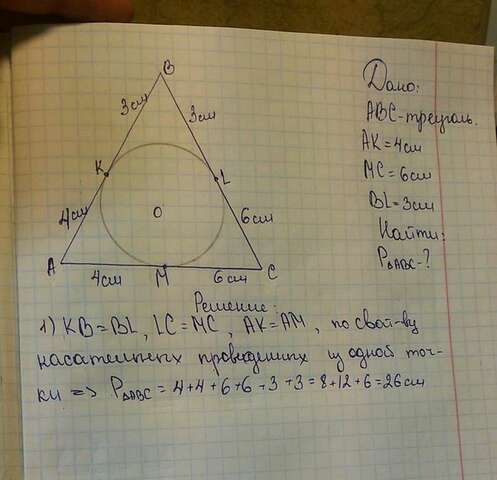 B
3см
3см
K
L
4см
O
6см
A
4см
M
6см
C
Дано:
ABC-треуголь.
AK=4см
MC=6см
BL=3см
Найти:
P△ABC-?
Решение:
1) KB=BL, LC=MC, AK=AM, по свой-ву
касательных проведенных из одной точ-
ки => P△ABC = 4+4+6+6+3+3=8+12+6=26см